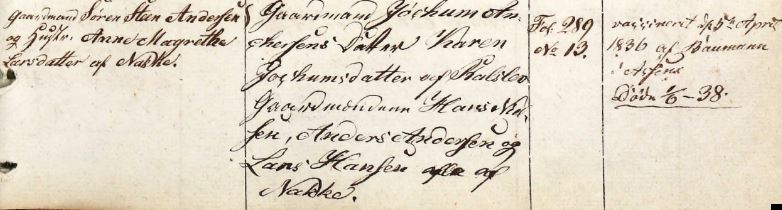 Gaardmand Søren Steen Andersen
og Hustr. Anne Magrethe
Larsdatter af Nakke.
Gaardmand Jóchum An-
dersens Datter Karen
Jochumsdatter af Rolslev
Gaardmændene Hans Niel-
sen, Anders Andersen og
Lars Hansen alle af
Nakke.
Fol. 289
No 13.
vaccineret d. 5te April
1836 af Baumann
i Assens
Døde 2/6-38.